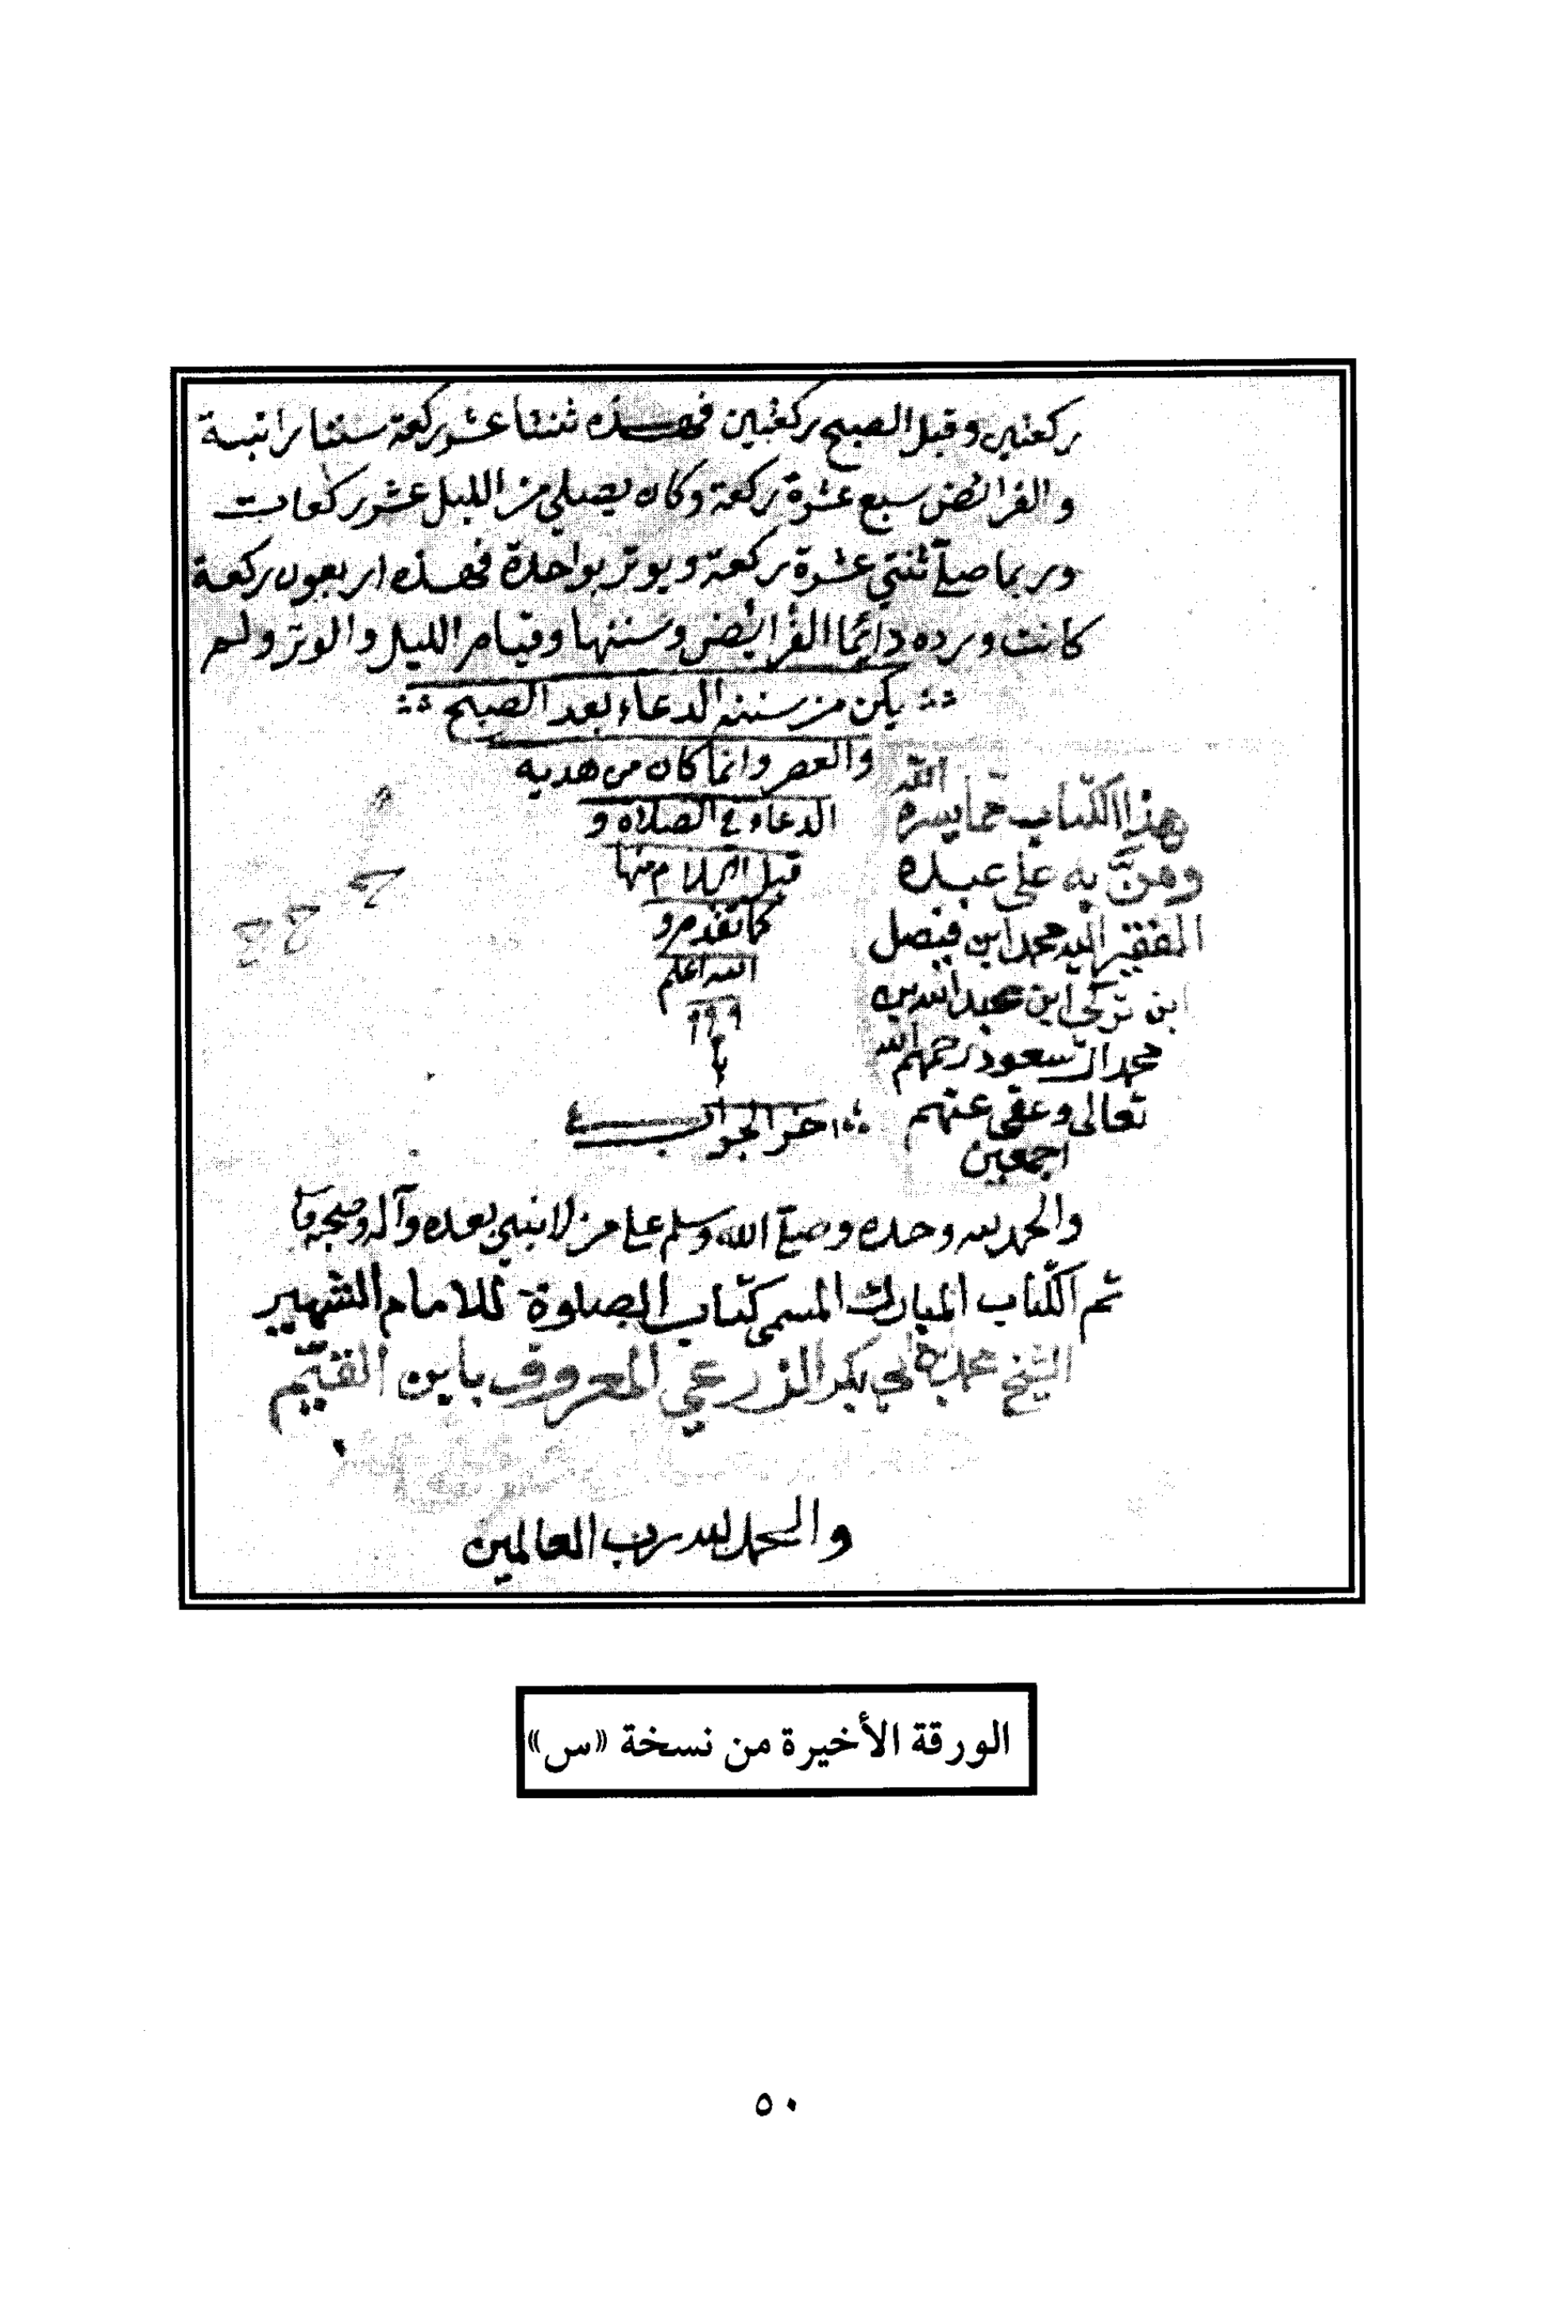 ركعتين وقبل الصبح ركعتين فهذه ثنتا عشر ركعة سننا راتبة
والفرائض سبع عشرة ركعة وكان يصلي من الليل عشر ركعات
وربما صلى ثنتي عشرة ركعة ويوتر بواحدة فهذه اربعون ركعة
كانت ورده دائما الفرائض وسننها وقيام الليل والوتر ولم
يكن من سننه الدعاء بعد الصبح
والعصر وانما كان من هديه
الدعاء في الصلاة و
قبل السلام منها
كما تقدم و
الله اعلم
اخر الجواب
هذا الكتاب مما يسره الله
ومنّ به على عبده
الفقير اليه محمد ابن فيصل
ابن تركي ابن عبد الله بن
محمد ال سعود رحمهم الله
تعالى وعفى عنهم
اجمعين
والحمد لله وحده وصلى الله وسلم على من لا نبي بعده وآله وصحبه
تم الكتاب المبارك المسمى كتاب الصلوة للامام الشهير
الشيخ محمد بن ابي بكر الزرعي المعروف بابن القيّم
والحمد لله رب العالمين
الورقة الأخيرة من نسخة «س»
٥٠